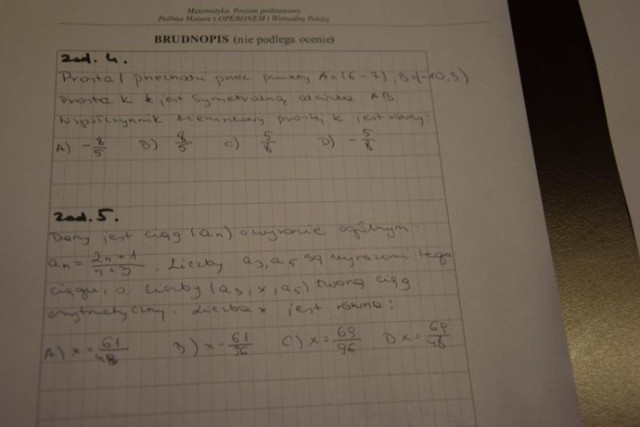 Matematyka. Poziom podstawowy
Próbna Matura z OPERONEM i Wirtualną Polską
BRUDNOPIS (nie podlega ocenie)
zad. 4.
Prosta l przechodzi przez punkty A=(6-7), B=(-10,3)
Prosta k k jest symetralną odcinka AB.
Współczynnik kierunkowy prostej k jest równy:
A) -8/5 B) 8/5 C) 5/8 D) -5/8
zad. 5.
Dany jest ciąg (an) o wyrazie ogólnym
an = 2n+1/n+3. Liczby a3, a5 są wyrazami tego
ciągu, a liczby (a3, x, a5) tworzą ciąg
arytmetyczny. Liczba x jest równa:
A) x=61/48 B) x=61/96 C) x=69/96 D x=69/48